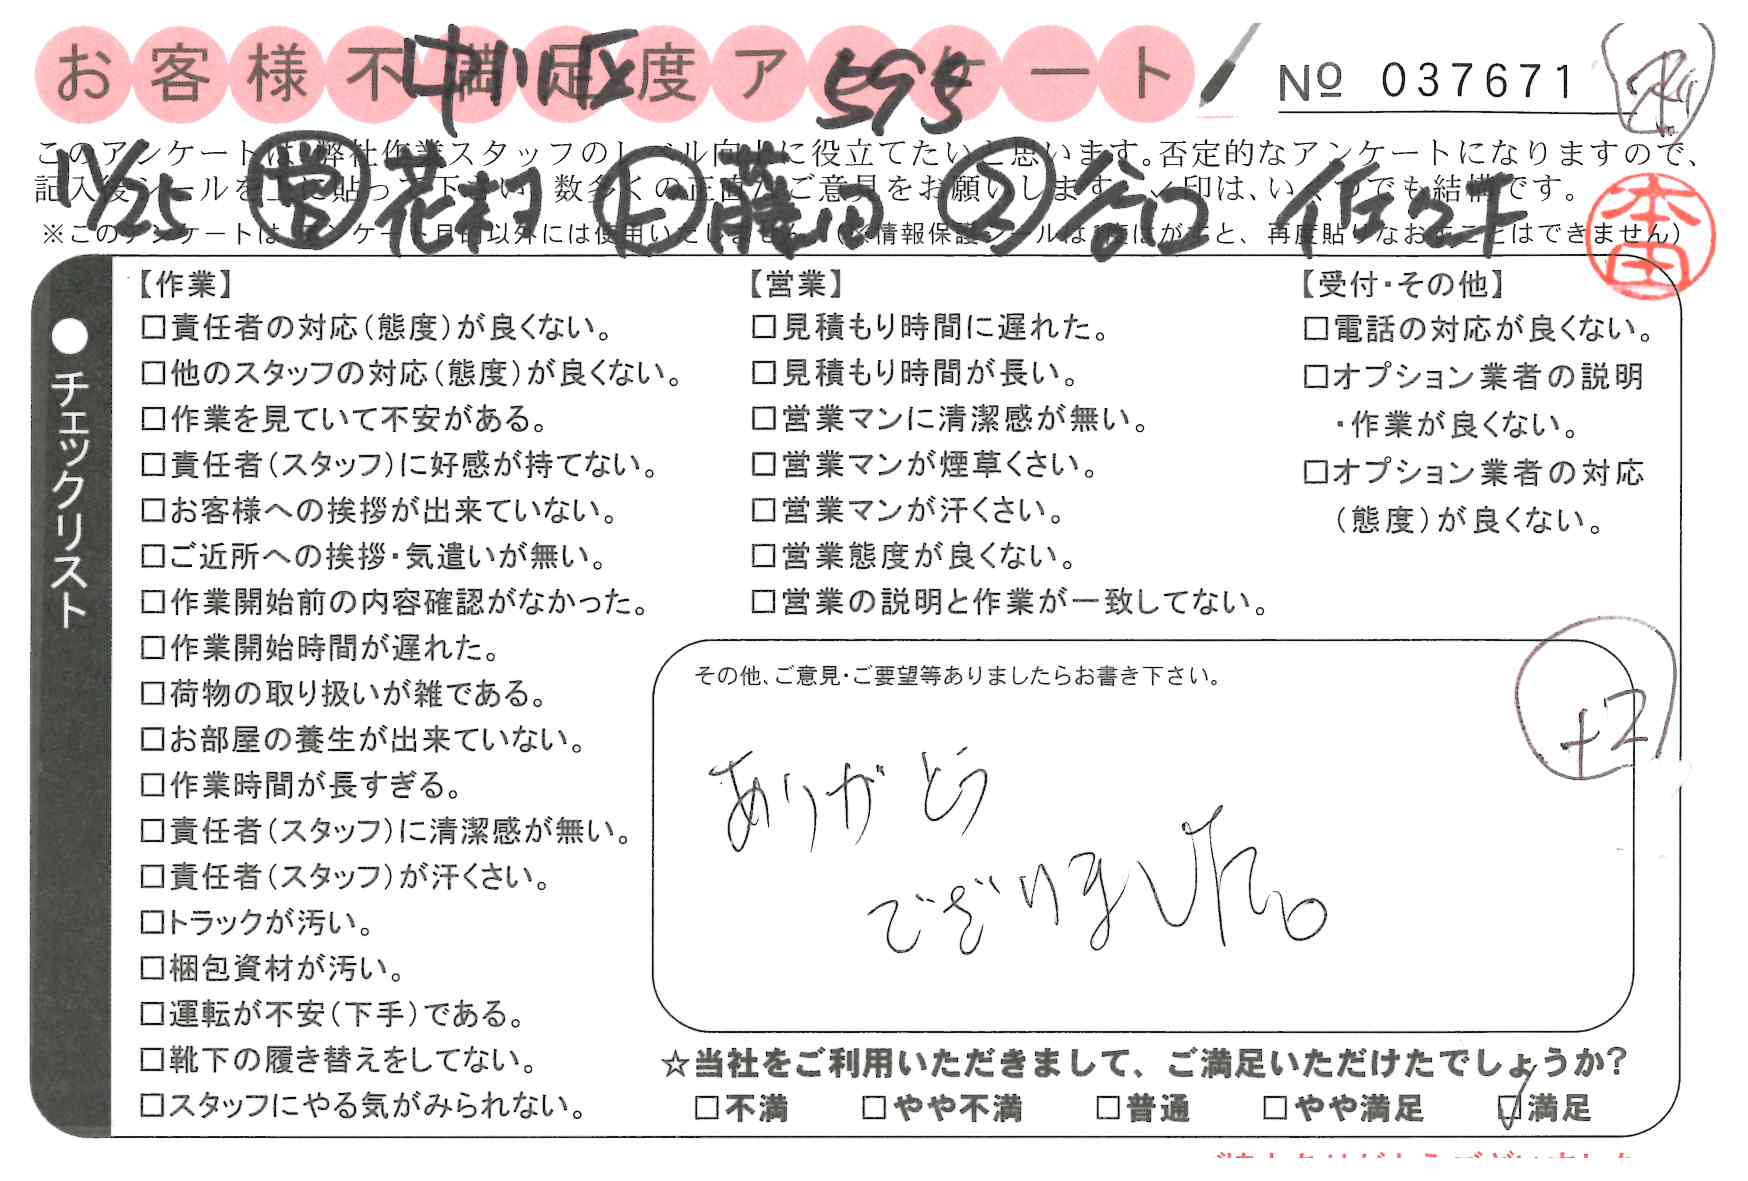 お客様不満足度アンケート
中川区 595
№ 037671
このアンケートは、弊社作業スタッフのレベル向上に役立てたいと思います。否定的なアンケートになりますので、
記入後シールを上に貼って下さい。数多くの正直なご意見をお願いします。✓印は、いくつでも結構です。
※このアンケートは、アンケート目的以外には使用いたしません。(※情報保護シールは1度はがすと、再度貼りなおすことはできません)
11/25 営 花村 ヒ 藤田 ス 谷口 佐々木
本田
●チェックリスト
【作業】
□責任者の対応(態度)が良くない。
□他のスタッフの対応(態度)が良くない。
□作業を見ていて不安がある。
□責任者(スタッフ)に好感が持てない。
□お客様への挨拶が出来ていない。
□ご近所への挨拶・気遣いが無い。
□作業開始前の内容確認がなかった。
□作業開始時間が遅れた。
□荷物の取り扱いが雑である。
□お部屋の養生が出来ていない。
□作業時間が長すぎる。
□責任者(スタッフ)に清潔感が無い。
□責任者(スタッフ)が汗くさい。
□トラックが汚い。
□梱包資材が汚い。
□運転が不安(下手)である。
□靴下の履き替えをしてない。
□スタッフにやる気がみられない。
【営業】
□見積もり時間に遅れた。
□見積もり時間が長い。
□営業マンに清潔感が無い。
□営業マンが煙草くさい。
□営業マンが汗くさい。
□営業態度が良くない。
□営業の説明と作業が一致してない。
【受付・その他】
□電話の対応が良くない。
□オプション業者の説明
・作業が良くない。
□オプション業者の対応
(態度)が良くない。
その他、ご意見・ご要望等ありましたらお書き下さい。
+2
ありがとう
ございました。
☆当社をご利用いただきまして、ご満足いただけたでしょうか?
□不満 □やや不満 □普通 □やや満足 ☑満足